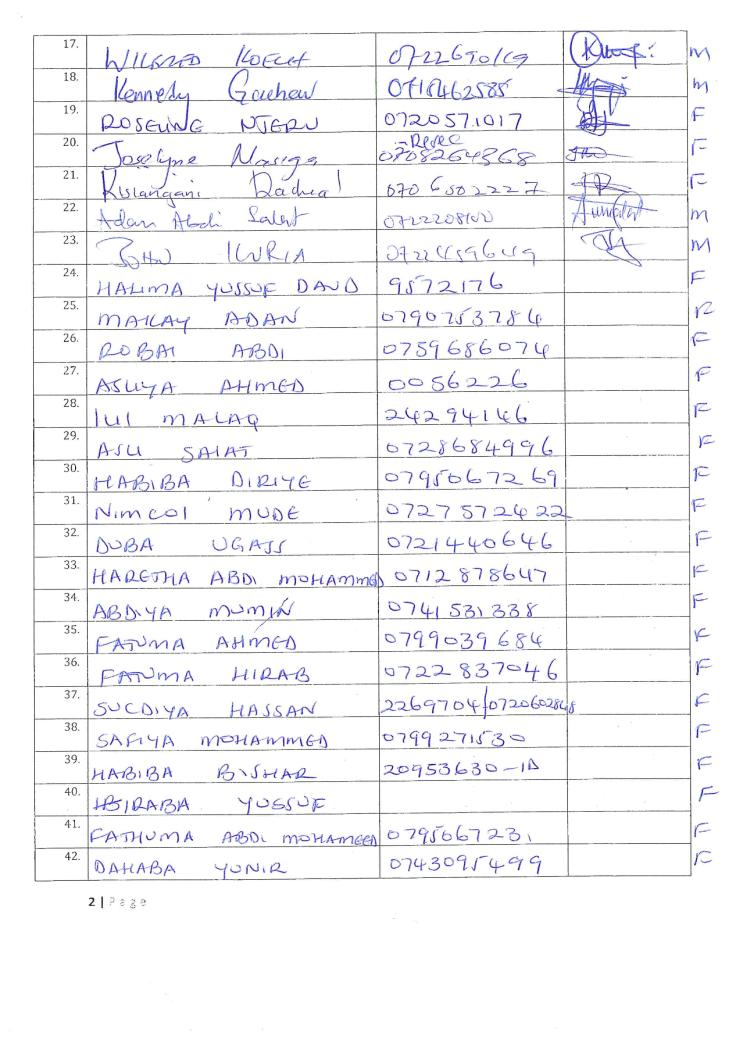 17. WILFRED KOECH 0722690169 M
18. Kennedy Gachau 0715462585 M
19. ROSELINE NJERU 0720571017 F
20. Joselyne 0708264868 F
21. Kislangani 0706502227 F
22. Adan Abdi Salat 0722208100 M
23. JOHN KURIA 0722459649 M
24. HALIMA YUSSUF DAUD 9572176 F
25. MAKAY ADAN 0790753784
26. ROBAI ABDI 0759686074 F
27. ASLIYA AHMED 0056226 F
28. IUI MALAQ 24294146 F
29. ASLI SALAT 0728684996 F
30. HABIBA DIRIYE 0795067269 F
31. NIMCOI MUDE 0727572422 F
32. DUBA UGASS 0721440646 F
33. HARETHA ABDI MOHAMMED 0712878647 F
34. ABDIYA MUMIN 0741531338 F
35. FATUMA AHMED 0799039684 F
36. FATUMA HIRAB 0722837046 F
37. SUCDIYA HASSAN 2269704/0720602848 F
38. SAFIYA MOHAMMED 0799271530 F
39. HABIBA BISHAR 20953630-ID F
40. YUSSUF F
41. FATHUMA ABDI MOHAMEED 0795067231 F
42. DAHABA YUNIR 0743095499 F
2 | Page